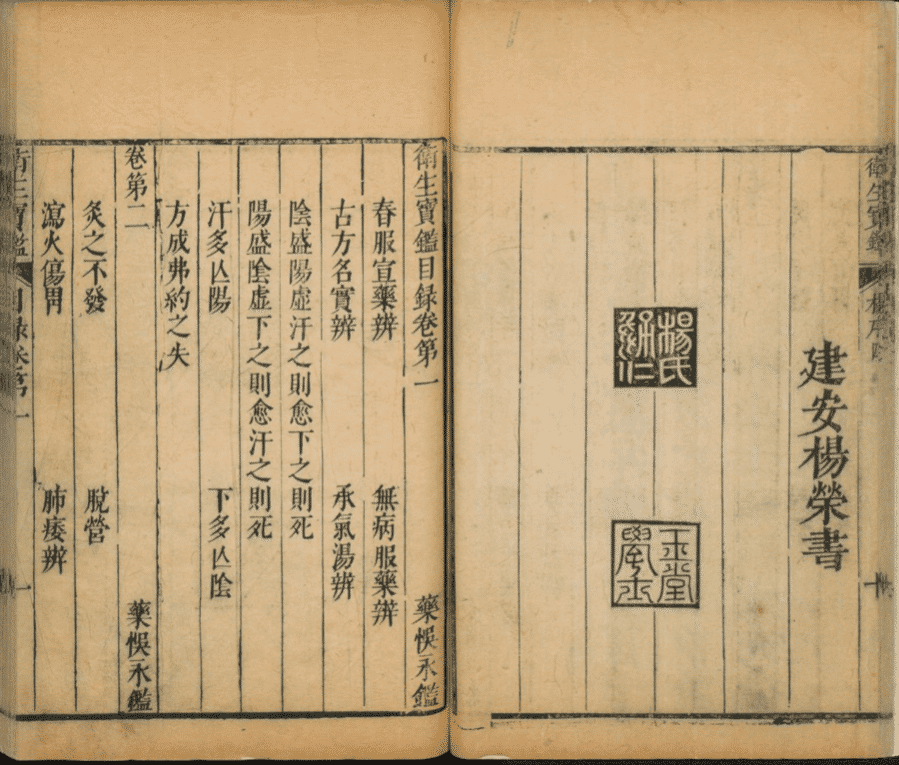 衛生寶鑑 楊序
建安楊榮書
楊氏勉仁
玉堂學士
衛生寶鑑目録卷第一 藥悮永鑑
春服宣藥辨 無病服藥辨
古方名實辨 承氣湯辨
陰盛陽虛汗之則愈下之則死
陽盛陰虛下之則愈汗之則死
汗多亾陽 下多亾陰
方成弗約之失
卷第二 藥悮永鑑
灸之不發 脫營
瀉火傷胃 肺痿辨
衛生寶鑑 目録卷第一 一